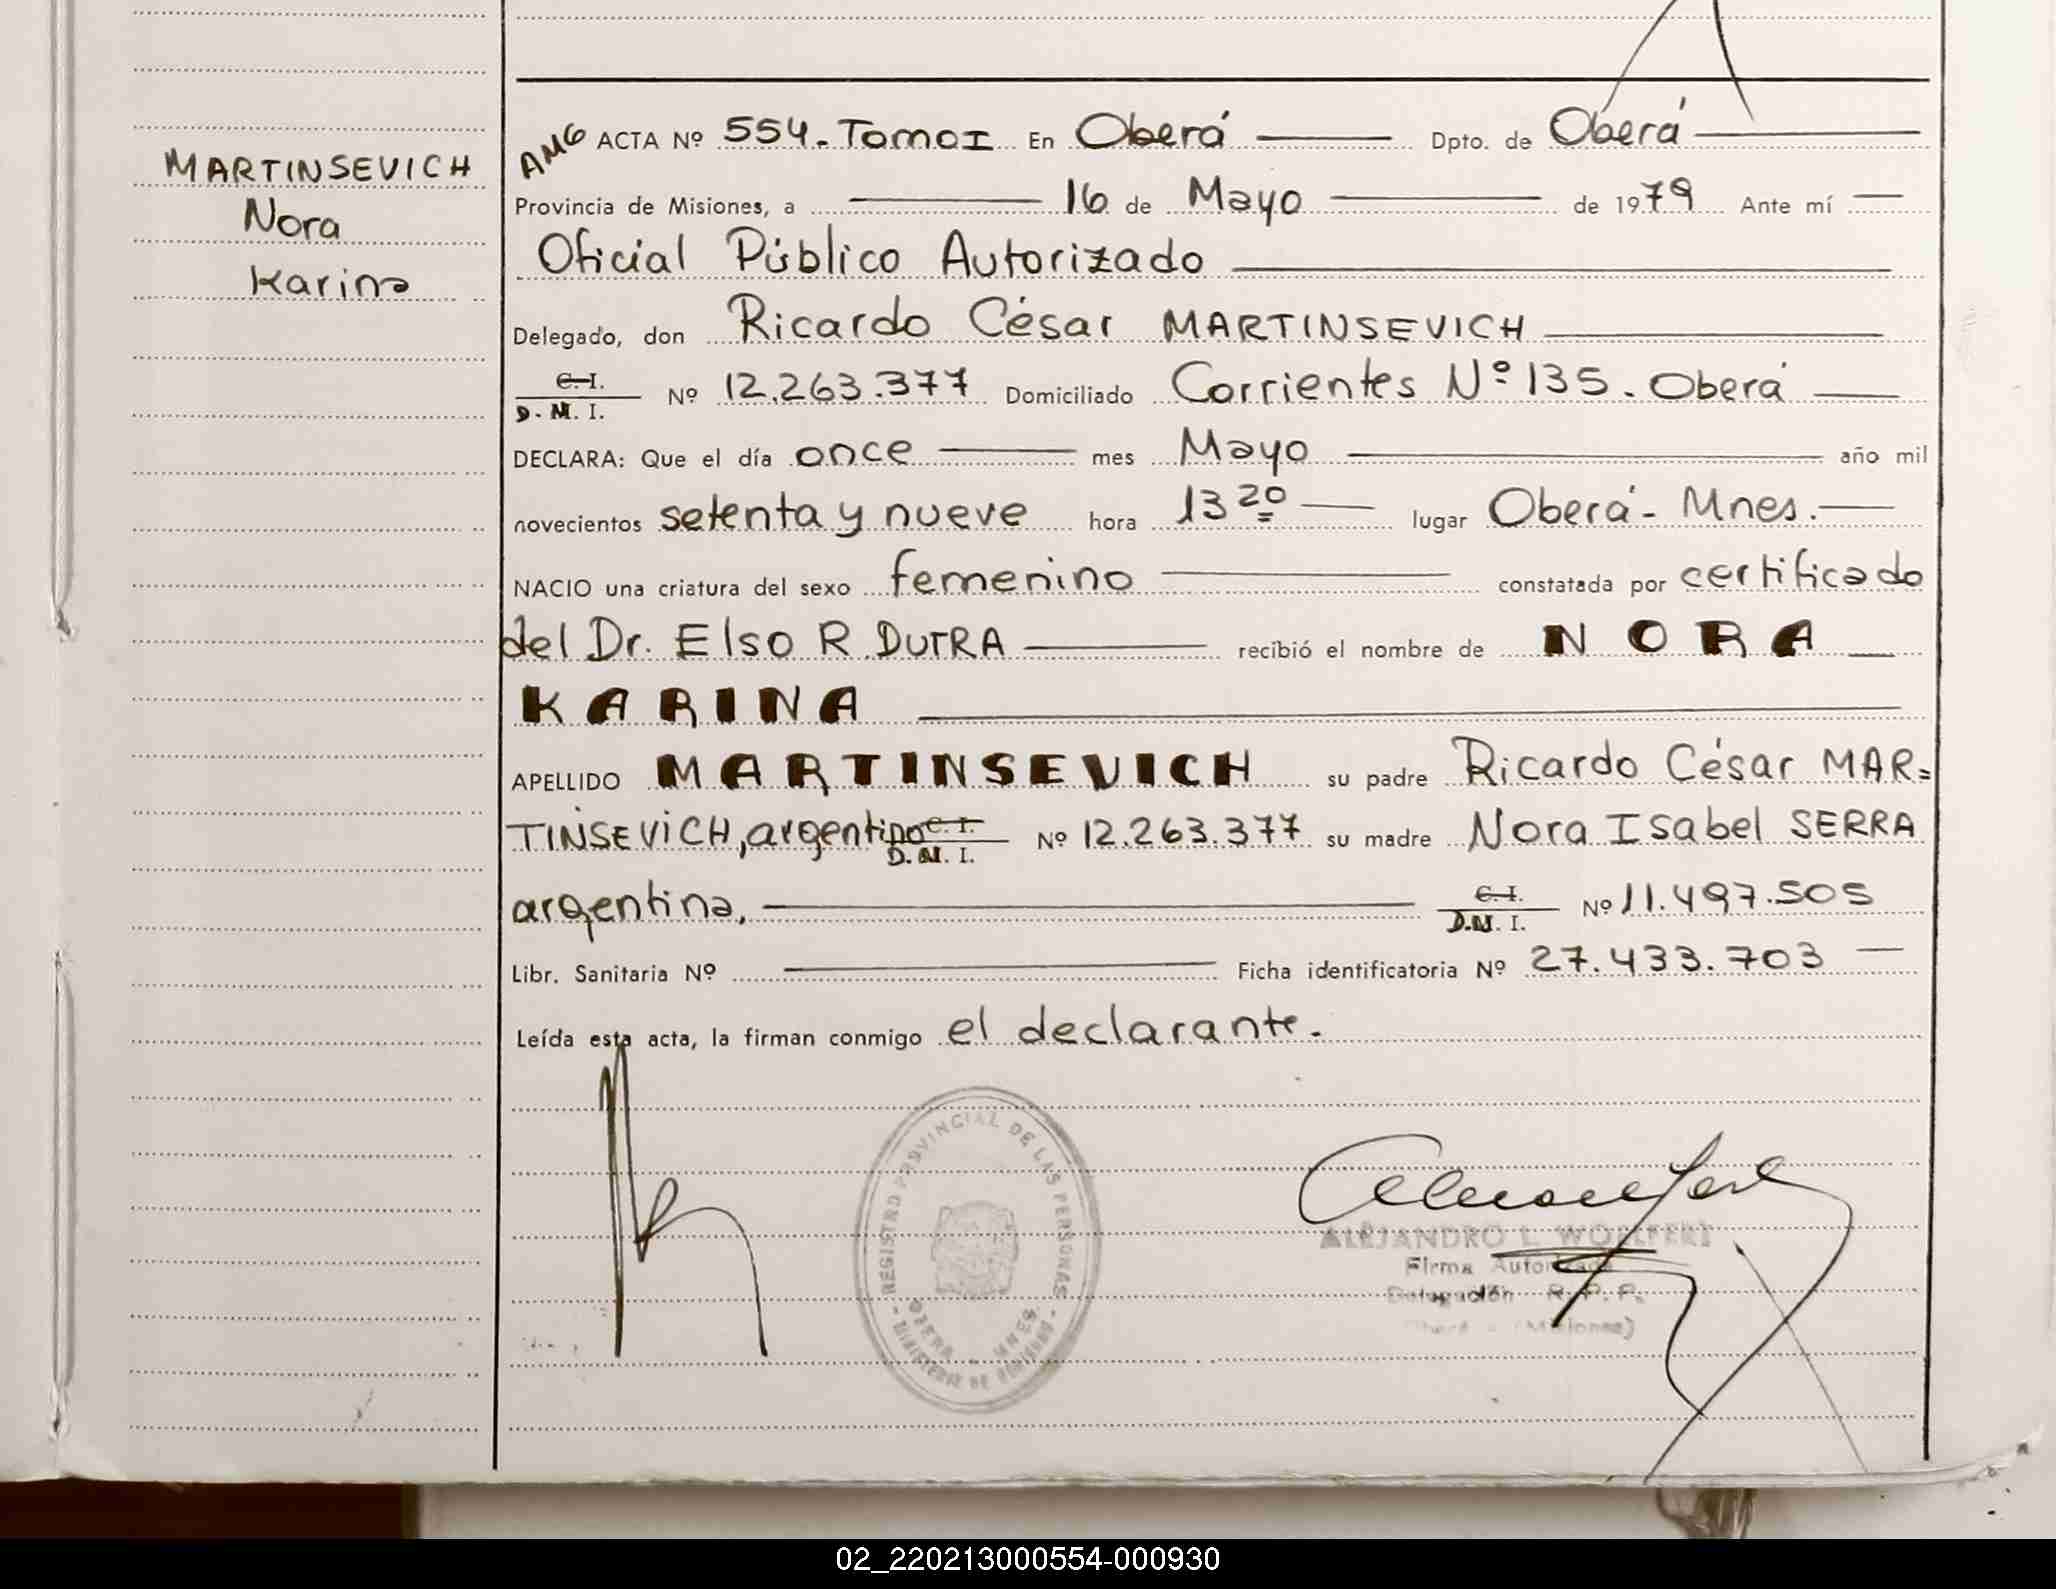 MARTINSEVICH
Nora
Karina
AMG ACTA Nº 554. Tomo I En Oberá Dpto. de Oberá
Provincia de Misiones, a 16 de Mayo de 1979 Ante mí
Oficial Público Autorizado
Delegado, don Ricardo César MARTINSEVICH
C. I.
D. N. I. Nº 12.263.377 Domiciliado Corrientes Nº 135. Oberá
DECLARA: Que el día once mes Mayo año mil
novecientos setenta y nueve hora 13 20 lugar Oberá - Mnes.
NACIO una criatura del sexo femenino constatada por certificado
del Dr. Elso R. DUTRA recibió el nombre de NORA
KARINA
APELLIDO MARTINSEVICH su padre Ricardo César MAR=
TINSEVICH, argentino C. I. D. N. I. Nº 12.263.377 su madre Nora Isabel SERRA
argentina, C. I. D. N. I. Nº 11.497.505
Libr. Sanitaria Nº Ficha identificatoria Nº 27.433.703
Leída esta acta, la firman conmigo el declarante.
REGISTRO PROVINCIAL DE LAS PERSONAS
OBERA - MNES
MINISTERIO DE GOBIERNO
ALEJANDRO L. WOELFERT
Firma Autorizada
Delegación R. P. P.
Oberá - (Misiones)
02_220213000554-000930